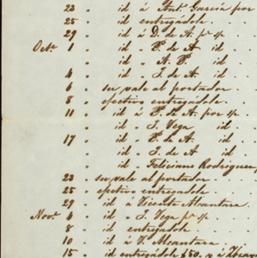 23 " id á Anto. Garcia por
25 " id entregádole
29 " id á D. de A. pr. o/.
Octe. 1 " id " P. de A id
" " id " A. P. id
4 " id " J. de A id
6 " su vale al portador
8 " efectivo entregádole
11 " id á P. de A. por o/.
" " id " J. Vega id
17 " id " P. de A. id
" " id " J. de A id
" " id " Feliciano Rodriguez
23 " su vale al portador
25 " efectivo entregádole
29 " id á Vicente Alcantara
Nove. 4 " id " J. Vega pr. o/.
8 " id entregádole
10 " id á V. Alcantara
15 " id entregádole $50, y á